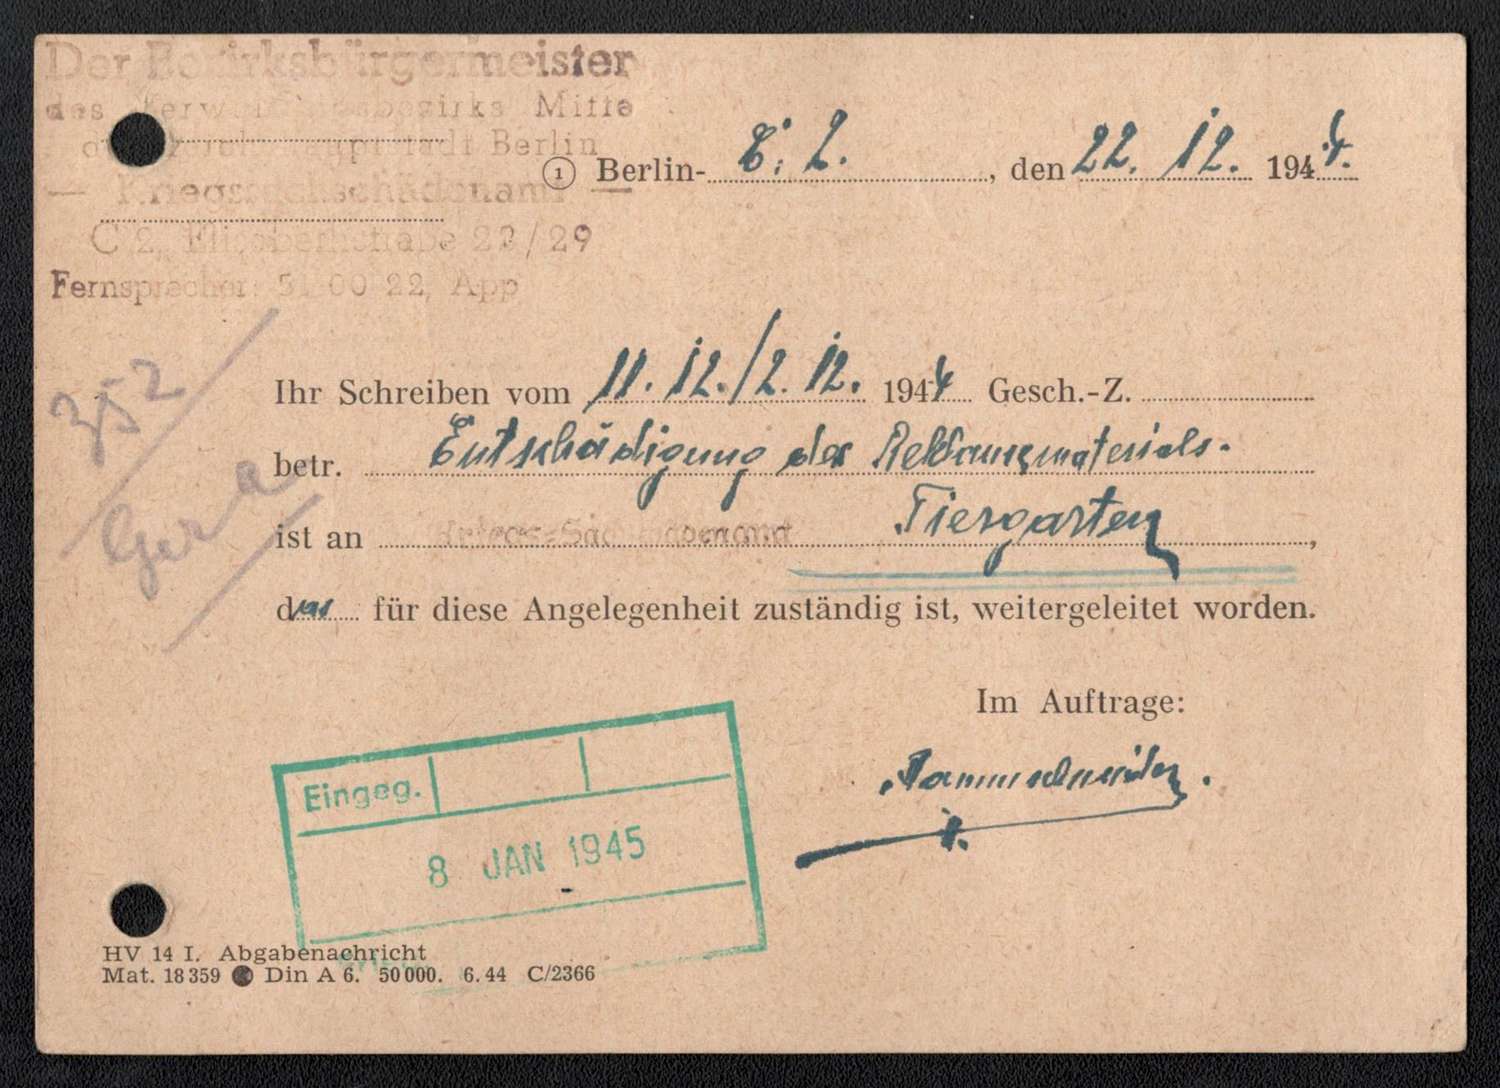 Der Bezirksbürgermeister
des Verwaltungsbezirks Mitte
der Reichshauptstadt Berlin
— Kriegssachschädenamt
C 2, Elisabethstraße 28/29
Fernsprecher: 51 00 22, App
① Berlin- C. 2. , den 22. 12. 1944.
352
Gera
Ihr Schreiben vom 11. 12./2. 12. 1944 Gesch.-Z.
betr. Entschädigung des Reklamematerials.
ist an Kriegs-Sachschädenamt Tiergarten,
das für diese Angelegenheit zuständig ist, weitergeleitet worden.
Im Auftrage:
Eingeg.
8 JAN 1945
HV 14 I. Abgabenachricht
Mat. 18359 Din A 6. 50000. 6.44 C/2366